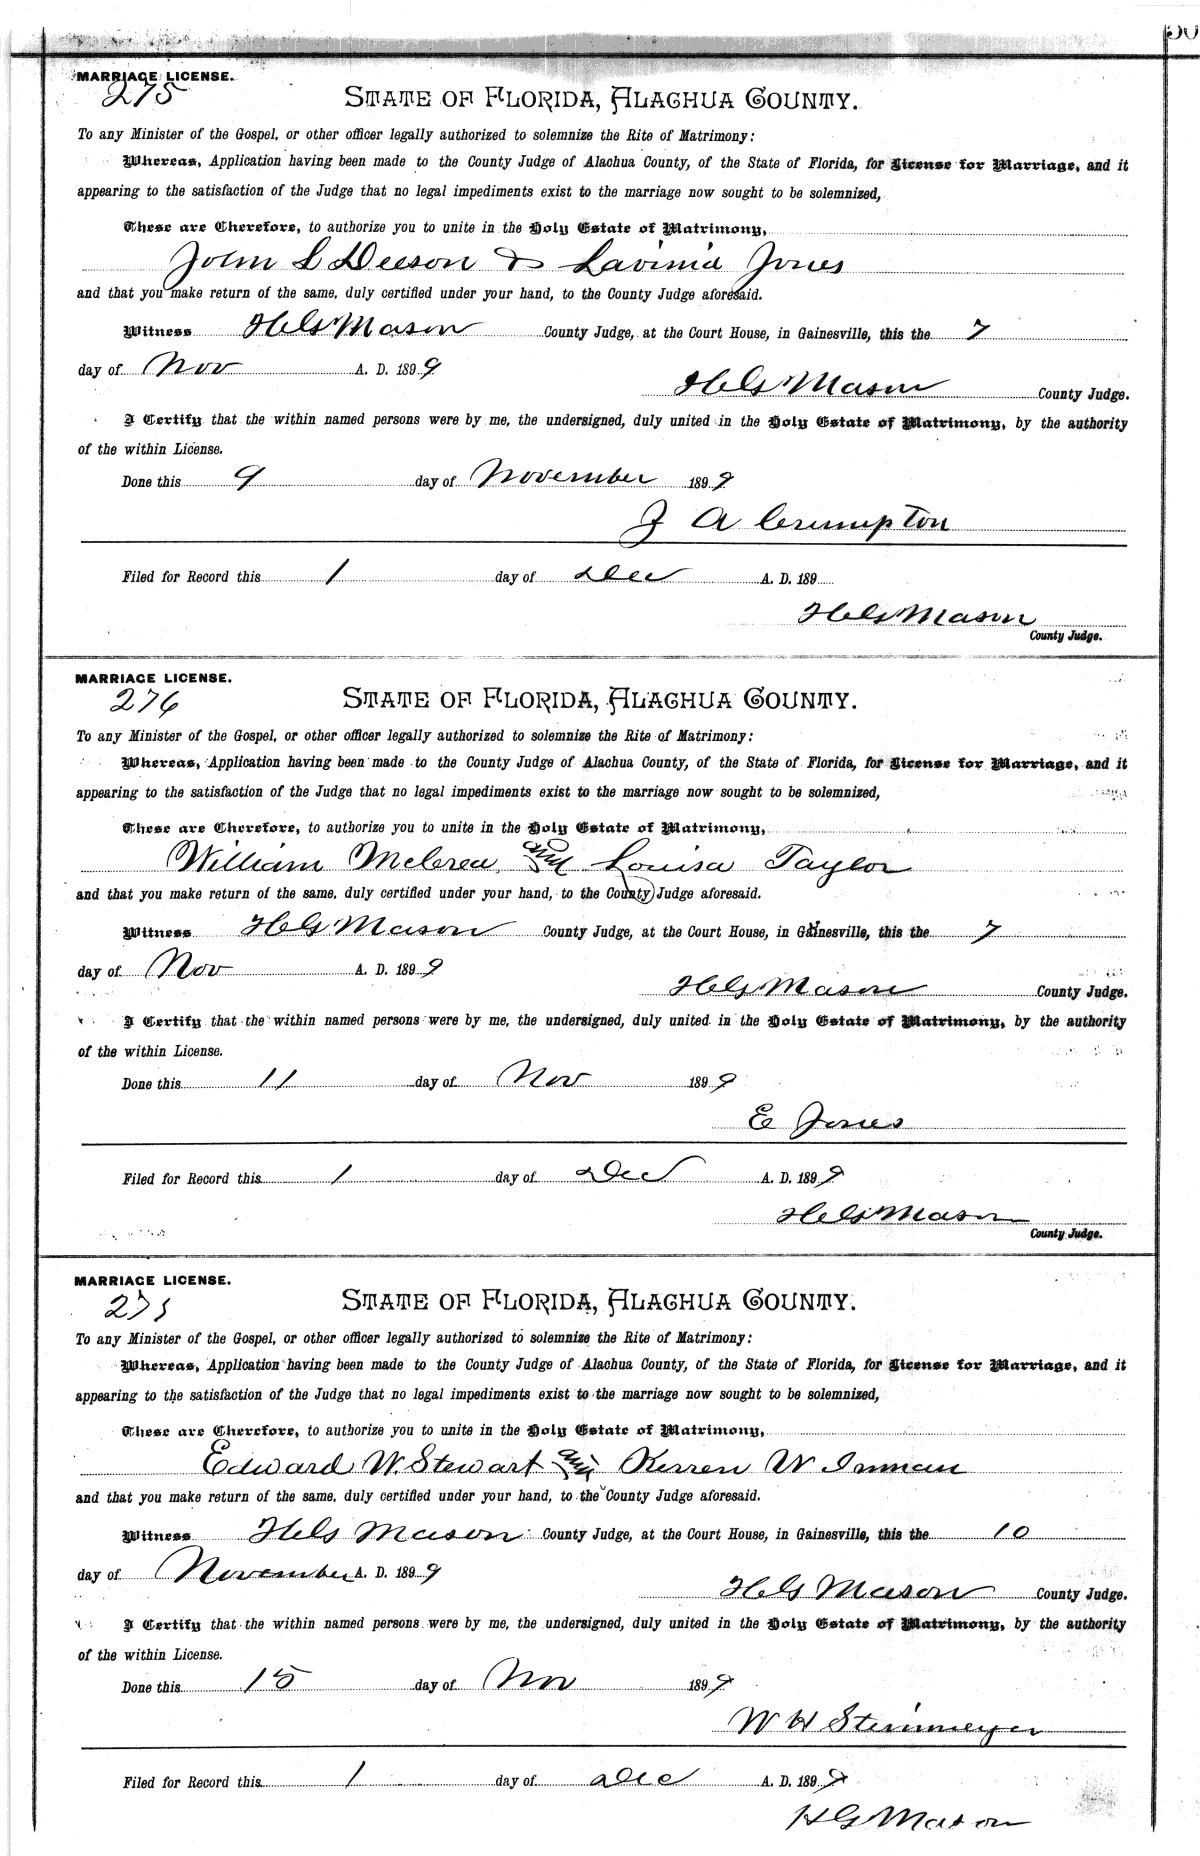 MARRIAGE LICENSE.
275
STATE OF FLORIDA, ALACHUA COUNTY.
To any Minister of the Gospel, or other officer legally authorized to solemnize the Rite of Matrimony:
Whereas, Application having been made to the County Judge of Alachua County, of the State of Florida, for License for Marriage, and it
appearing to the satisfaction of the Judge that no legal impediments exist to the marriage now sought to be solemnized,
These are Therefore, to authorize you to unite in the Holy Estate of Matrimony,
John L Deeson & Lavinia Jones
and that you make return of the same, duly certified under your hand, to the County Judge aforesaid.
Witness H G Mason County Judge, at the Court House, in Gainesville, this the 7
day of Nov A. D. 1899
H G Mason County Judge.
I Certify that the within named persons were by me, the undersigned, duly united in the Holy Estate of Matrimony, by the authority
of the within License.
Done this 9 day of November 1899
J A Crumpton
Filed for Record this 1 day of Dec A. D. 189
H G Mason
County Judge.
MARRIAGE LICENSE.
276
STATE OF FLORIDA, ALACHUA COUNTY.
To any Minister of the Gospel, or other officer legally authorized to solemnize the Rite of Matrimony:
Whereas, Application having been made to the County Judge of Alachua County, of the State of Florida, for License for Marriage, and it
appearing to the satisfaction of the Judge that no legal impediments exist to the marriage now sought to be solemnized,
These are Therefore, to authorize you to unite in the Holy Estate of Matrimony,
William McCrea and Louisa Taylor
and that you make return of the same, duly certified under your hand, to the County Judge aforesaid.
Witness H G Mason County Judge, at the Court House, in Gainesville, this the 7
day of Nov A. D. 1899
H G Mason County Judge.
I Certify that the within named persons were by me, the undersigned, duly united in the Holy Estate of Matrimony, by the authority
of the within License.
Done this 11 day of Nov 1899
E Jones
Filed for Record this 1 day of Dec A. D. 1899
H G Mason
County Judge.
MARRIAGE LICENSE.
STATE OF FLORIDA, ALACHUA COUNTY.
To any Minister of the Gospel, or other officer legally authorized to solemnize the Rite of Matrimony:
Whereas, Application having been made to the County Judge of Alachua County, of the State of Florida, for License for Marriage, and it
appearing to the satisfaction of the Judge that no legal impediments exist to the marriage now sought to be solemnized,
These are Therefore, to authorize you to unite in the Holy Estate of Matrimony,
Edward W. Stewart and Kerren W Inman
and that you make return of the same, duly certified under your hand, to the County Judge aforesaid.
Witness H G Mason County Judge, at the Court House, in Gainesville, this the 10
day of November A. D. 1899
H G Mason County Judge.
I Certify that the within named persons were by me, the undersigned, duly united in the Holy Estate of Matrimony, by the authority
of the within License.
Done this 15 day of Nov 1899
W H Steinmeyer
Filed for Record this 1 day of Dec A. D. 1899
H G Mason